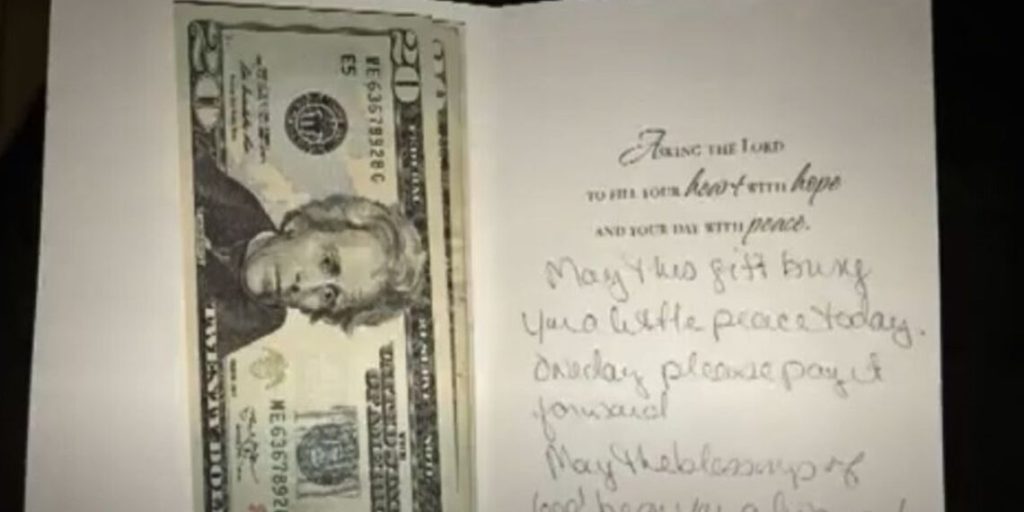 20
20
ME63678928G
E5
FEDERAL RESERVE NOTE
THE
UNITED STATES
OF AMERICA
ME6367892
TWENTY DO
Asking the Lord
to fill your heart with hope
and your day with peace.
May this gift bring
you a little peace today.
One day please pay it
forward
May the blessings of